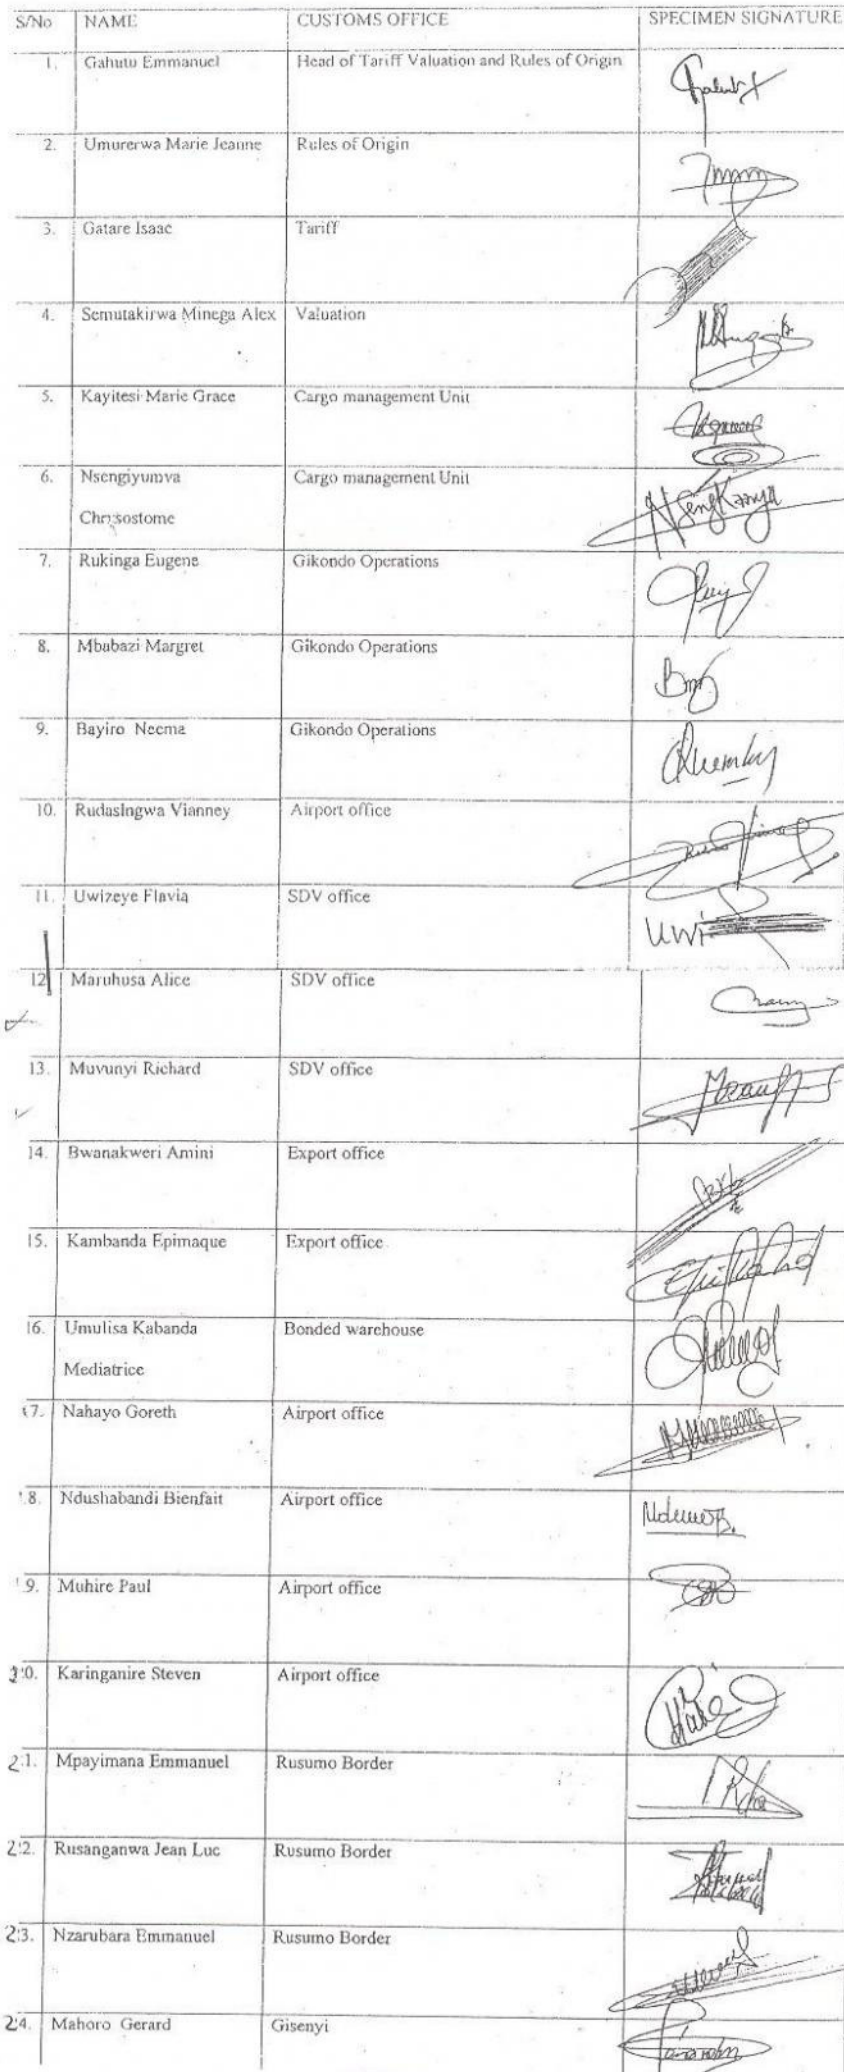 S/No NAME CUSTOMS OFFICE SPECIMEN SIGNATURE
1. Gahutu Emmanuel Head of Tariff Valuation and Rules of Origin
2. Umurerwa Marie Jeanne Rules of Origin
3. Gatare Isaac Tariff
4. Semutakirwa Minega Alex Valuation
5. Kayitesi Marie Grace Cargo management Unit
6. Nsengiyumva Cargo management Unit
Chrysostome
7. Rukinga Eugene Gikondo Operations
8. Mbabazi Margret Gikondo Operations
9. Bayiro Neema Gikondo Operations
10. Rudasingwa Vianney Airport office
11. Uwizeye Flavia SDV office
12 Maruhusa Alice SDV office
13. Muvunyi Richard SDV office
14. Bwanakweri Amini Export office
15. Kambanda Epimaque Export office
16. Umulisa Kabanda Bonded warehouse
Mediatrice
17. Nahayo Goreth Airport office
18. Ndushabandi Bienfait Airport office
19. Muhire Paul Airport office
20. Karinganire Steven Airport office
21. Mpayimana Emmanuel Rusumo Border
22. Rusanganwa Jean Luc Rusumo Border
23. Nzarubara Emmanuel Rusumo Border
24. Mahoro Gerard Gisenyi